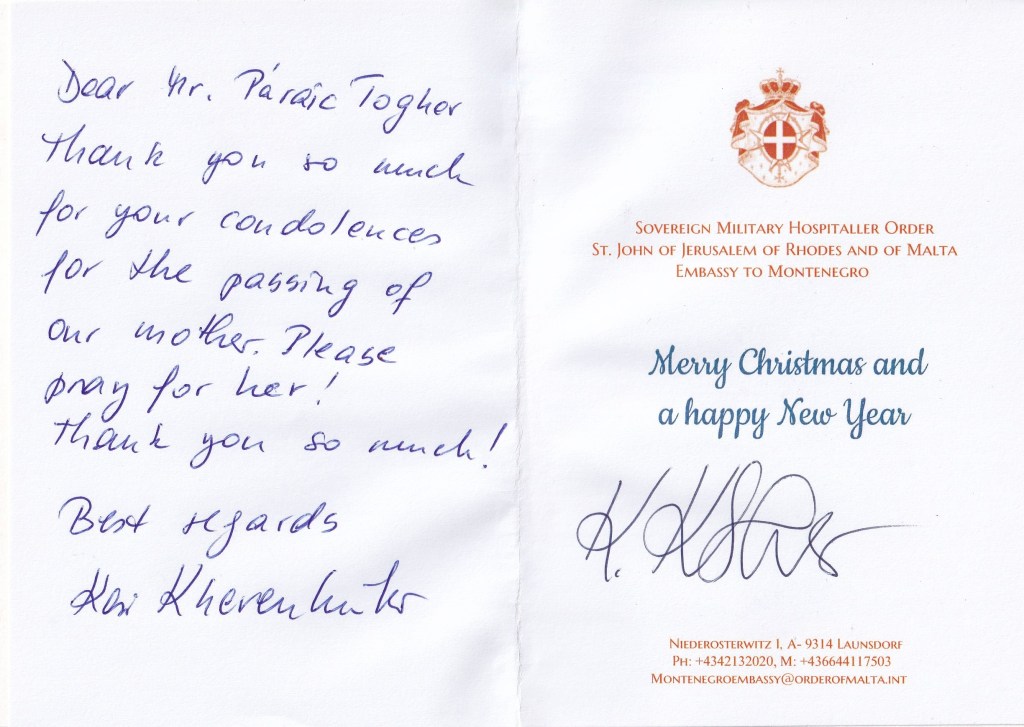 Dear Mr. Páraic Togher
Thank you so much
for your condolences
for the passing of
our mother. Please
pray for her!
Thank you so much!
Best regards
Khevenhüller
Sovereign Military Hospitaller Order
St. John of Jerusalem of Rhodes and of Malta
Embassy to Montenegro
Merry Christmas and
a happy New Year
Niederosterwitz 1, A- 9314 Launsdorf
Ph: +4342132020, M: +436644117503
Montenegroembassy@orderofmalta.int